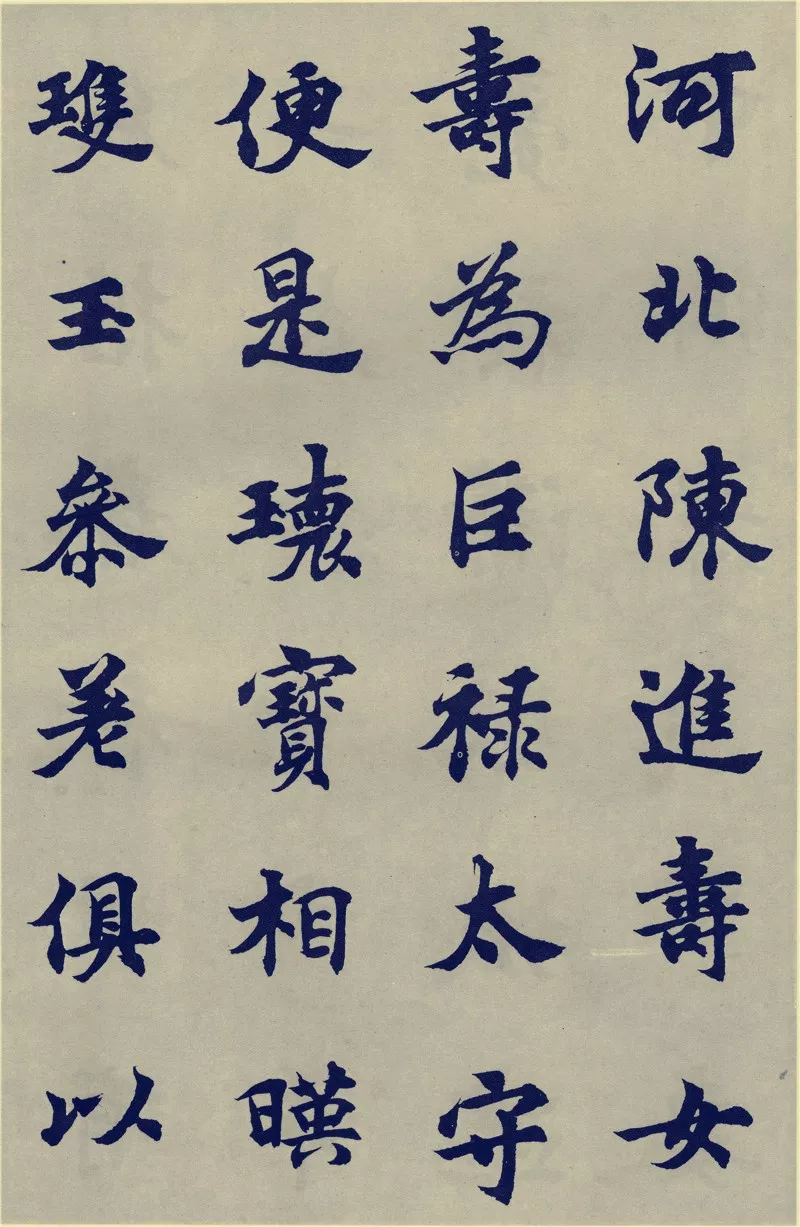 河北陳進壽女
壽為巨禄太守
便是瓌寶相暎
雙玉參差俱以